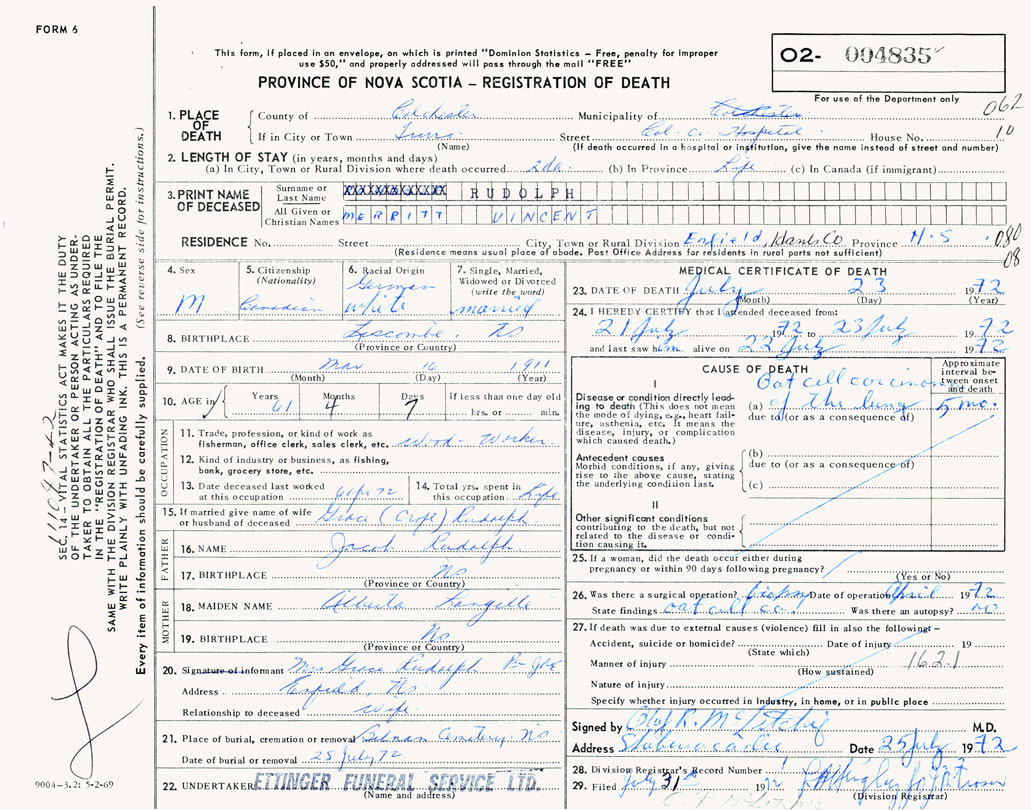 FORM 6
This form, if placed in an envelope, on which is printed "Dominion Statistics – Free, penalty for improper
use $50," and properly addressed will pass through the mail "FREE"
PROVINCE OF NOVA SCOTIA – REGISTRATION OF DEATH
02- 004835
For use of the Department only
062
1. PLACE OF DEATH
County of Colchester Municipality of Colchester
If in City or Town Truro Street Col. Co. Hospital House No. 10
(Name) (If death occurred in a hospital or institution, give the name instead of street and number)
2. LENGTH OF STAY (in years, months and days)
(a) In City, Town or Rural Division where death occurred 2 da. (b) In Province Life (c) In Canada (if immigrant)
3. PRINT NAME OF DECEASED
Surname or Last Name XXXXXXXXXXXXX RUDOLPH
All Given or Christian Names MERRITT VINCENT
RESIDENCE No. Street City, Town or Rural Division Enfield, Hants Co. Province N.S. 080
(Residence means usual place of abode. Post Office Address for residents in rural parts not sufficient) 08
4. Sex M
5. Citizenship (Nationality) Canadian
6. Racial Origin German white
7. Single, Married, Widowed or Divorced (write the word) married
8. BIRTHPLACE Liscombe NS
(Province or Country)
9. DATE OF BIRTH Mar 16 1911
(Month) (Day) (Year)
10. AGE in Years 61 Months 4 Days 7 if less than one day old
hrs. or min.
OCCUPATION
11. Trade, profession, or kind of work as
fisherman, office clerk, sales clerk, etc. Wood-Worker
12. Kind of industry or business, as fishing,
bank, grocery store, etc.
13. Date deceased last worked at this occupation Apr 72
14. Total yrs. spent in this occupation Life
15. If married give name of wife
or husband of deceased Grace (Croft) Rudolph
FATHER
16. NAME Jacob Rudolph
17. BIRTHPLACE NS
(Province or Country)
MOTHER
18. MAIDEN NAME Alberta Langille
19. BIRTHPLACE NS
(Province or Country)
20. Signature of informant Mrs Grace Rudolph
Address Enfield, NS.
Relationship to deceased wife
21. Place of burial, cremation or removal Cemetery NS
Date of burial or removal 25 July 72
22. UNDERTAKER ETTINGER FUNERAL SERVICE LTD.
(Name and address)
MEDICAL CERTIFICATE OF DEATH
23. DATE OF DEATH July 23 1972
(Month) (Day) (Year)
24. I HEREBY CERTIFY that I attended deceased from:
21 July 1972 to 23 July 1972
and last saw him alive on 22 July 1972
CAUSE OF DEATH
Approximate interval between onset and death
I
Disease or condition directly leading to death (This does not mean the mode of dying, e.g., heart failure, asthenia, etc. It means the disease, injury, or complication which caused death.)
(a) Oat cell carcinoma of the lung 5 mo.
due to (or as a consequence of)
Antecedent causes
Morbid conditions, if any, giving rise to the above cause, stating the underlying condition last.
(b)
due to (or as a consequence of)
(c)
II
Other significant conditions
contributing to the death, but not related to the disease or condition causing it.
25. If a woman, did the death occur either during
pregnancy or within 90 days following pregnancy?
(Yes or No)
26. Was there a surgical operation? biopsy Date of operation April 1972
State findings oat cell ca. Was there an autopsy? no
27. If death was due to external causes (violence) fill in also the following:–
Accident, suicide or homicide? Date of injury 19
(State which)
Manner of injury 162.1
(How sustained)
Nature of injury
Specify whether injury occurred in industry, in home, or in public place
Signed by M.D.
Address Shubenacadie Date 25 July 1972
28. Division Registrar's Record Number
29. Filed July 31st 19
(Division Registrar)
SEC. 14 – VITAL STATISTICS ACT MAKES IT THE DUTY
OF THE UNDERTAKER OR PERSON ACTING AS UNDER-
TAKER TO OBTAIN ALL THE PARTICULARS REQUIRED
IN THE "REGISTRATION OF DEATH" AND TO FILE THE
SAME WITH THE DIVISION REGISTRAR WHO SHALL ISSUE THE BURIAL PERMIT.
WRITE PLAINLY WITH UNFADING INK. THIS IS A PERMANENT RECORD.
Every item of information should be carefully supplied. (See reverse side for instructions.)
9004-3.2: 5-2-69